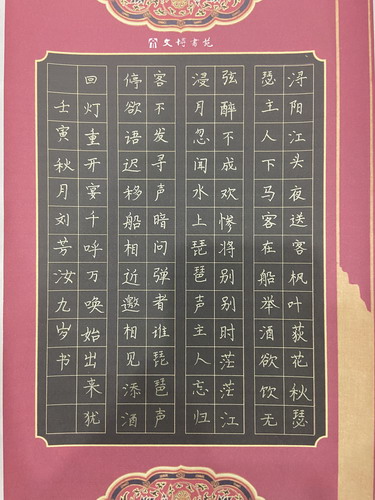 文博書苑
浔阳江头夜送客枫叶荻花秋瑟
瑟主人下马客在船举酒欲饮无
弦醉不成欢惨将别别时茫茫江
浸月忽闻水上琵琶声主人忘归
客不发寻声暗问弹者谁琵琶声
停欲语迟移船相近邀相见添酒
回灯重开宴千呼万唤始出来犹
壬寅秋月刘芳汝九岁书